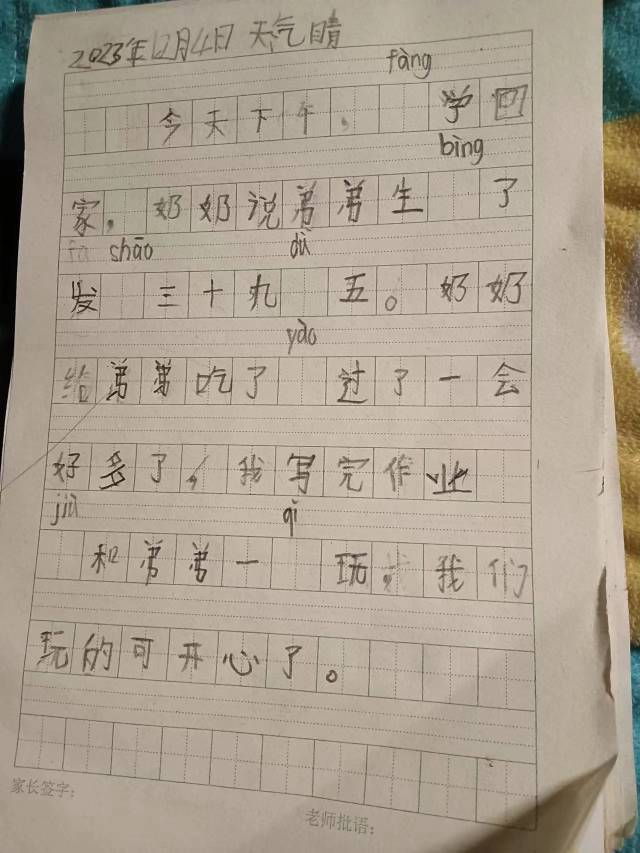 2023年12月4日 天气晴
fàng
今天下午，学回
bìng
家，奶奶说弟弟生 了
fā shāo dù
发 三十九 五。奶奶
yào
给弟弟吃了 过了一会
好多了，我写完作业
jiù qǐ
和弟弟一 玩，我们
玩的可开心了。
家长签字：
老师批语：